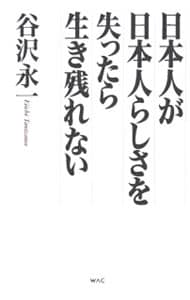 日本人が
日本人らしさを
失ったら
生き残れない
谷沢永一
Eiichi Tanizawa
WAC